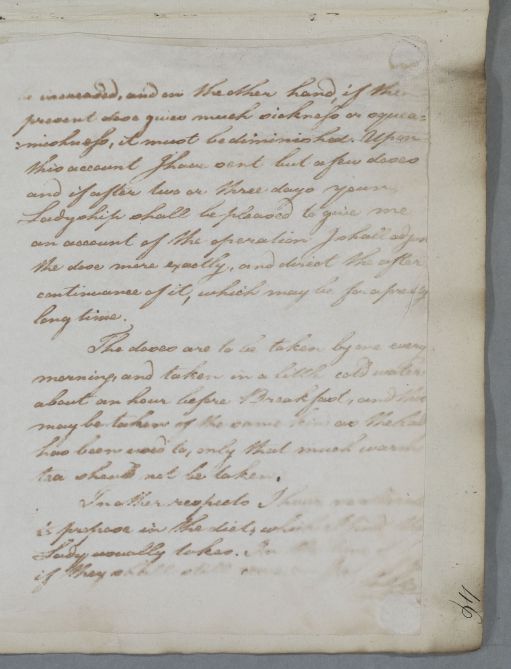 increased, and on the other hand, if the
present dose gives much sickness or squea=
=mishness, it must be diminished. Upon
this account I have sent but a few doses
and if after two or three days your
Ladyship shall be pleased to give me
an account of the operation I shall adjust
the dose more exactly, and direct the after
continuance of it, which may be for a pretty
long time.
The doses are to be taken by one every
morning, and taken in a little cold water
about an hour before Breakfast, and
may be taken of the same as the
has been used to, only that much warm
tea should not be taken.
In other respects I have
is propose in the diet, which I the
Lady usually takes. In the
if they shall still
94